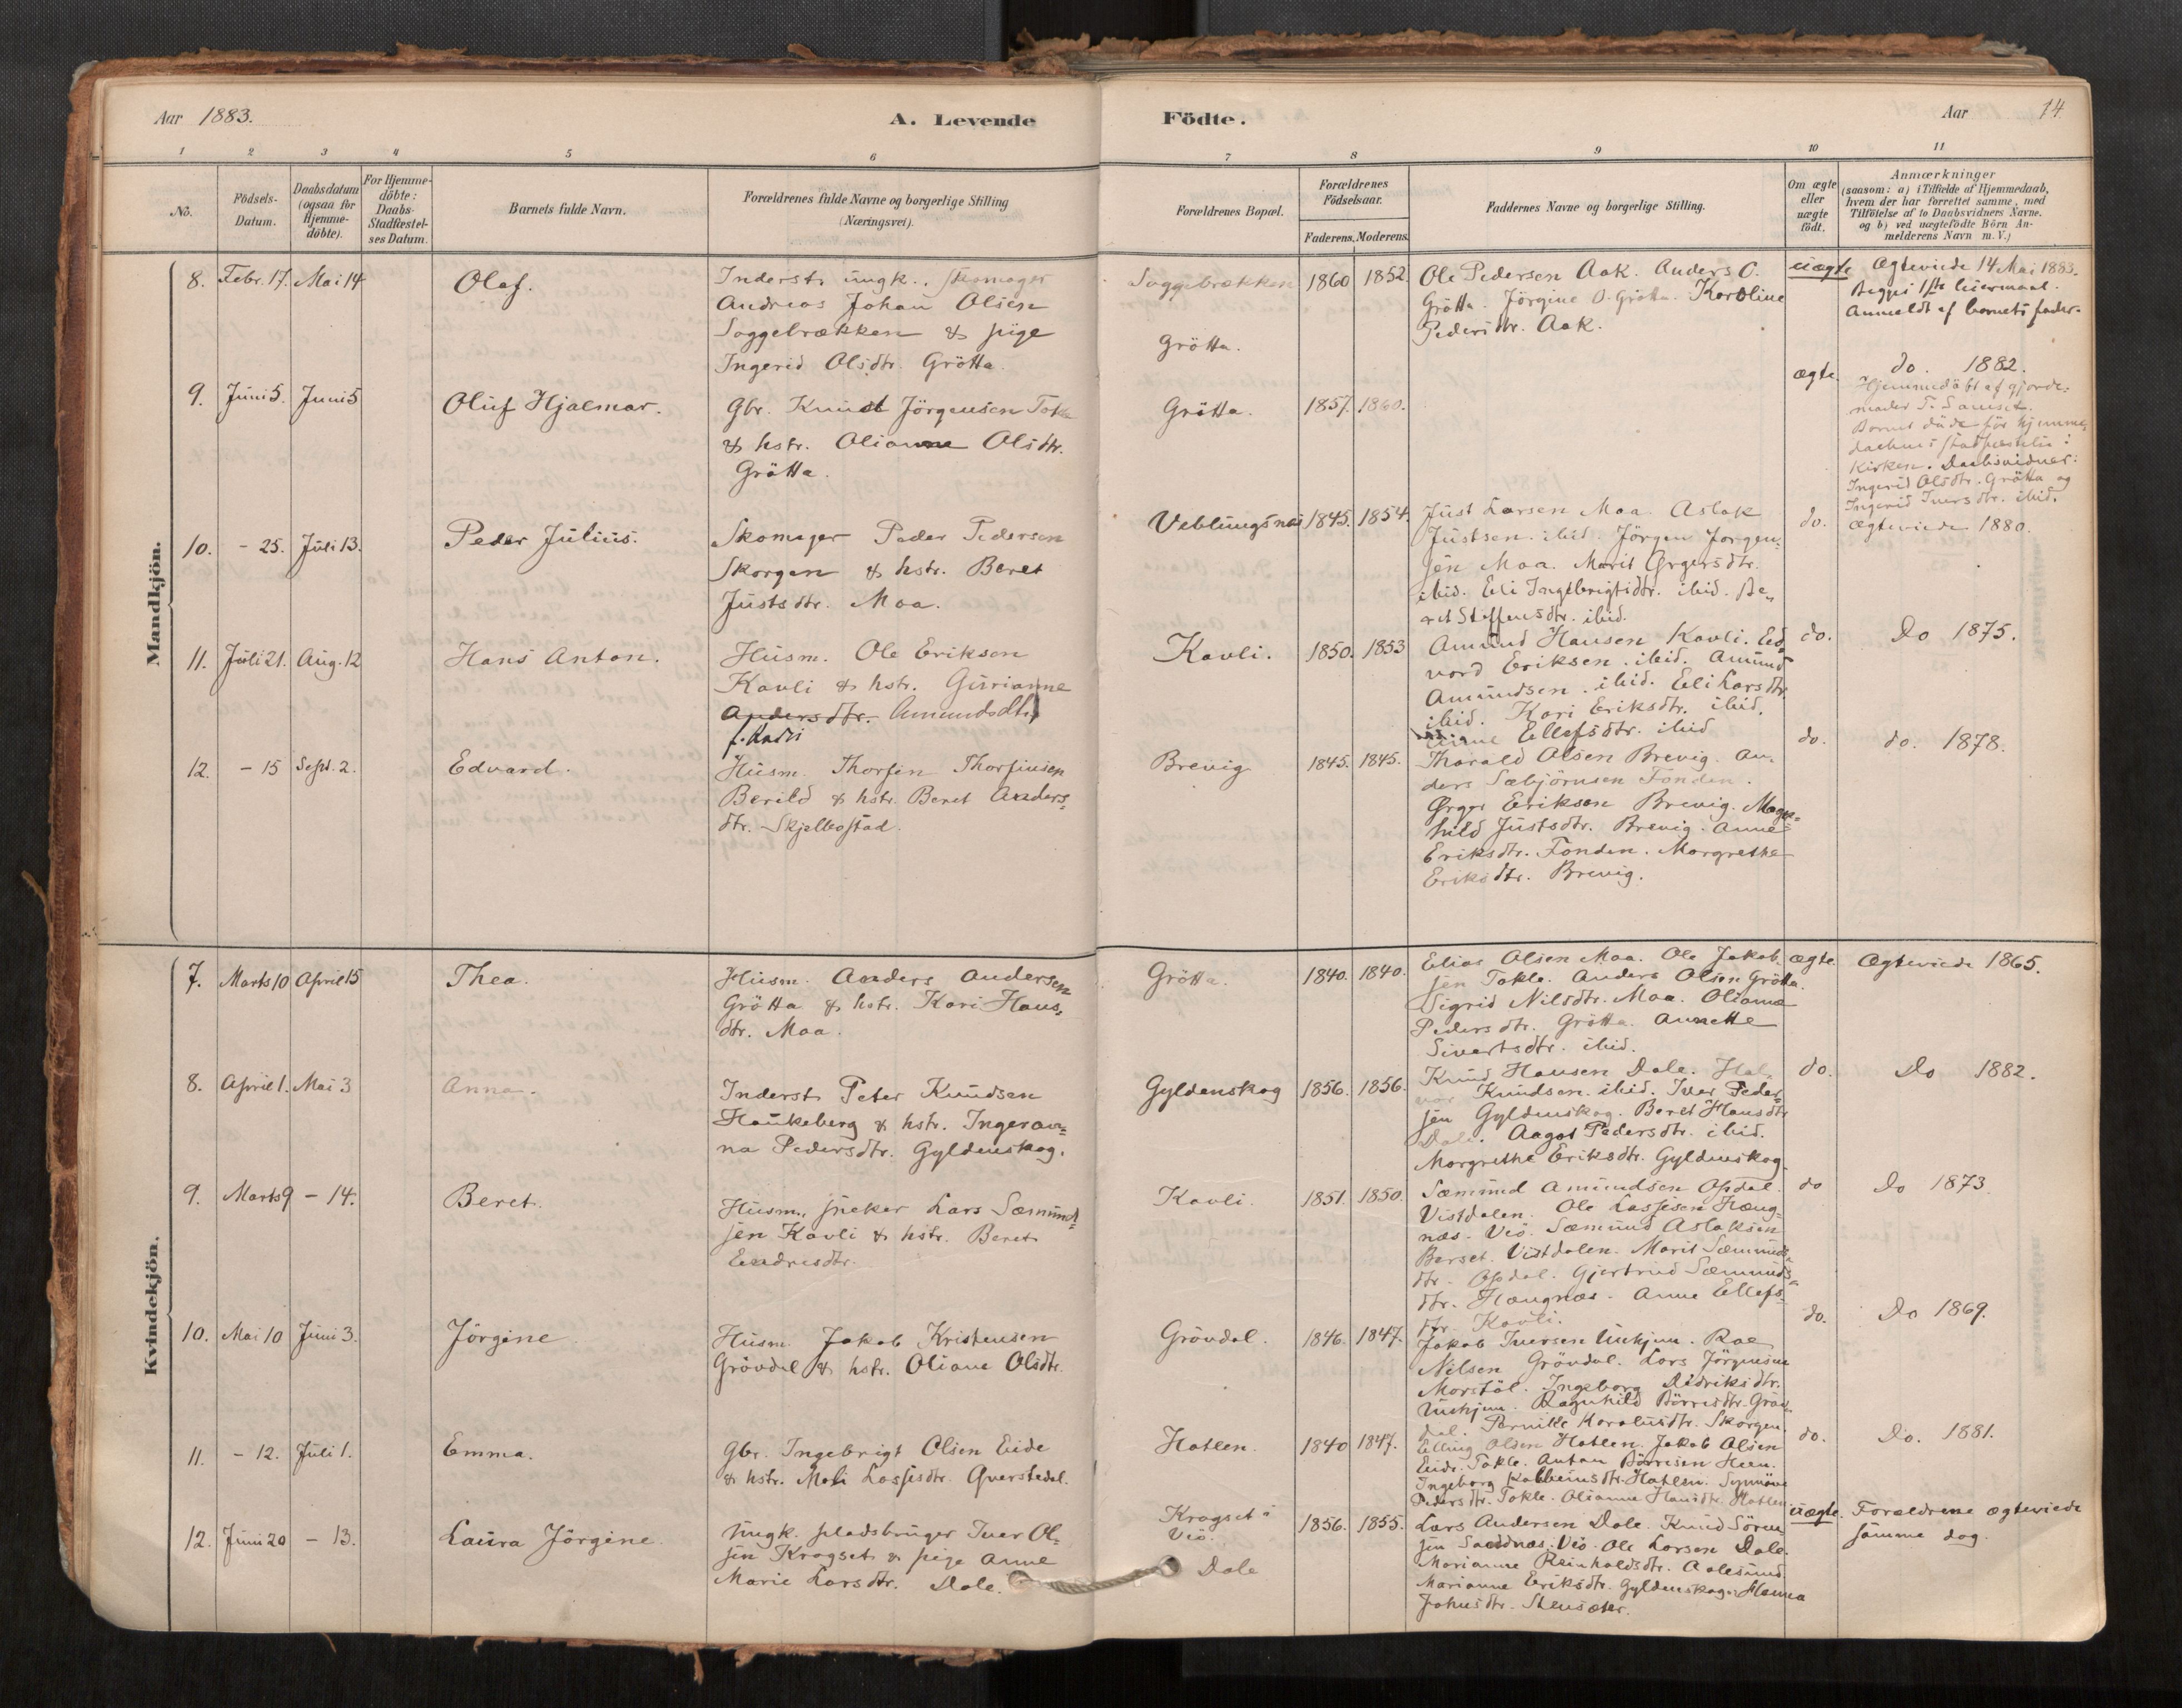 Aar 1883.
A. Levende
Födte.
Aar 14.
1 2 3 4 5 6 7 8 9 10 11
No.
Födsels-
Datum.
Daabsdatum
(ogsaa for
Hjemme-
döbte).
For Hjemme-
döbte:
Daabs-
Stadfæstel-
ses Datum.
Barnets fulde Navn.
Forældrenes fulde Navne og borgerlige Stilling
(Næringsvei).
Forældrenes Bopæl.
Forældrenes
Födselsaar.
Faderens. Moderens.
Faddernes Navne og borgerlige Stilling.
Om ægte
eller
uægte
födt.
Anmærkninger
(saasom: a) i Tilfælde af Hjemmedaab,
hvem der har forrettet samme, med
Tilföielse af to Daabsvidners Navne.
og b) ved uægtefödte Börn An-
melderens Navn m. V.)
Mandkjön.
8. Febr. 17. Mai 14
Olaf.
Inderst, ungk., skomager
Andreas Johan Olsen
Soggebrækken & pige
Ingerid Olsdtr. Grötta.
Soggebrækken
Grötta.
1860 1852
Ole Pedersen Aak. Anders O.
Grötta. Jörgine O. Grötta. Karoline
Pedersdtr. Aak.
uægte
Ægteviede 14 Mai 1883.
Begges 1ste
Anmeldt af barnets fader.
9. Juni 5. Juni 5
Oluf Hjalmar.
Gbr. Knud Jörgensen Tokle
& hstr. Olianne Olsdtr.
Grötta.
Grötta.
1857. 1860.
ægte.
do. 1882.
Hjemmedöbt af gjorde-
moder
Barnet döde för hjemme-
daabens stadfæstelse i
kirken. Daabsvidner:
Ingerid Olsdtr. Grötta og
Ingerid Iversdtr. ibid.
10. - 25. Juli 13.
Peder Julius.
Skomager Peder Pedersen
Skorgen & hstr. Beret
Justsdtr. Moa.
Veblungsnæs
1845. 1854.
Just Larsen Moa. Aslak
Justsen. ibid. Jörgen Jorgen-
sen Moa. Marit Ørgersdtr.
ibid. Eli Ingebrigtsdtr. ibid. Be-
ret Steffensdtr. ibid.
do.
Ægteviede 1880.
11. Juli 21. Aug. 12
Hans Anton.
Husm. Ole Eriksen
Kavli & hstr. Gurianne
Andersdtr. Amundsdtr.
Kavli.
1850. 1853
Amund Hansen Kavli. Ed-
vard Eriksen. ibid. Amund
Amundsen. ibid. Eli Larsdtr.
ibid. Kari Eriksdtr. ibid.
Ellefsdtr. ibid
do.
Do 1875.
12. - 15 Sept. 2.
Edvard.
Husm. Thorfin Thorfinsen
Berild & hstr. Beret Anders-
dtr. Skjelbostad.
Brevig
1845. 1845.
Harald Olsen Brevig. An-
ders Sæbjörnsen Fonden.
Ørger Eriksen Brevig. Magn-
hild Justsdtr. Brevig. Anne
Eriksdtr. Fonden. Margrethe
Eriksdtr. Brevig.
do.
do. 1878.
Kvindekjön.
7. Marts 10 April 15
Thea.
Husm. Anders Andersen
Grötta & hstr. Kari Hans-
dtr. Moa.
Grötta.
1840. 1840.
Elias Olsen Moa. Ole Jakob-
sen Tokle. Anders Olsen Grötta.
Sigrid Nilsdtr. Moa. Olianna
Pedersdtr. Grötta. Annette
Sivertsdtr. ibid.
ægte.
Ægteviede 1865.
8. April 1. Mai 3
Anna.
Inderst Peter Knudsen
Haukeberg & hstr. Ingeran-
na Pedersdtr. Gyldenskog.
Gyldenskog
1856. 1856.
Knud Hansen Dale. Hal-
vor Knudsen. ibid. Iver Peder-
sen Gyldenskog. Beret Hansdtr.
Dale. Aagot Pedersdtr. ibid.
Margrethe Eriksdtr. Gyldenskog.
do.
Do 1882.
9. Marts 9 - 14.
Beret.
Husm., sneker Lars Sæmund-
sen Kavli & hstr. Beret
Endresdtr.
Kavli.
1851. 1850.
Sæmund Amundsen Opdal.
Vistdalen. Ole Lassesen Hæng-
næs. Veö. Sæmund Aslaksen
Berset. Vistdalen. Marit Sæmunds-
dtr. Opdal. Gjertrud Sæmunds-
dtr. Hængnæs. Anne Ellefs-
dtr. Kavli.
do
Do 1873.
10. Mai 10 Juni 3.
Jörgine
Husm. Jakob Kristensen
Grövdal & hstr. Oliane Olsdtr.
Grövdal.
1846. 1847.
Jakob Iversen Unhjem. Roe
Nilsen Grövdal. Lars Jörgensen
Morstöl. Ingeborg Didriksdtr.
Unhjem. Ragnhild Börresdtr. Gröv-
dal. Pernille Karolusdtr. Skorgen.
do.
Do 1869.
11. - 12. Juli 1.
Emma.
Gbr. Ingebrigt Olsen Eide
& hstr. Mali Lassesdtr. Qverstedal.
Hatlen.
1840 1847.
Elling Olsen Hatlen. Jakob Olsen
Eide. Tokle. Anton Börresen Hen.
Ingeborg Hatlen. Synnöve
Pedersdtr. Tokle. Olianne Hansdtr. Hatlen.
do.
Do. 1881.
12. Juni 20 - 13.
Laura Jörgine.
Ungk. pladsbruger Iver Ol-
sen Krogset & pige Anne
Marie Larsdtr. Dale.
Krogset i
Veö.
Dale
1856. 1855.
Lars Andersen Dale. Knud Sören-
sen Veö. Ole Larsen Dale.
Marianne Reinholdsdtr. Aalesund.
Marianne Eriksdtr. Gyldenskog. Hanna
Johnsdtr. Stensæter.
uægte.
Forældrene ægteviede
samme dag.